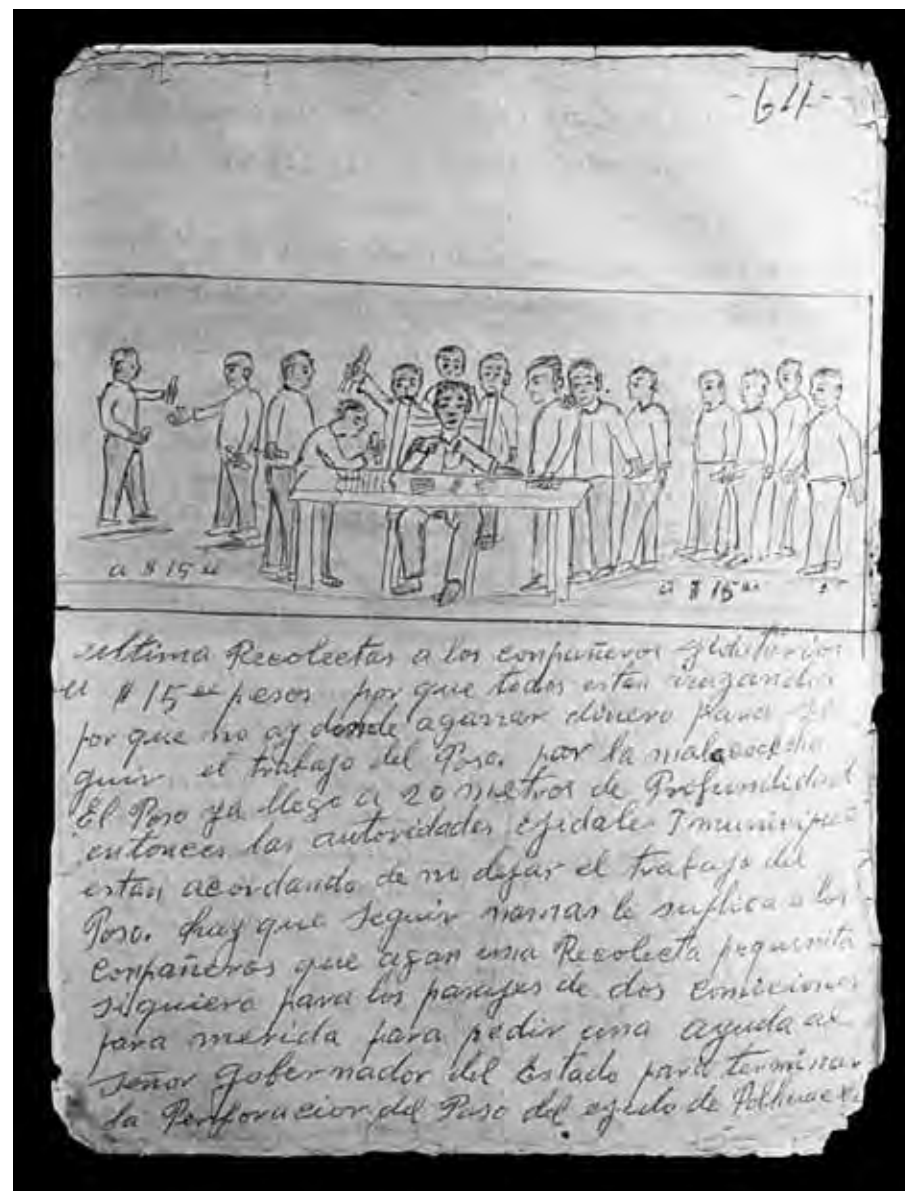 -64-
a $ 15 00
a $ 15 00
Ultima Recolectas a los conpañeros ejidatarios
a $ 15 00 pesos por que todos estan
por que no ay donde agarrar dinero para se
guir el trabajo del Poso. por la mala cosecha
El Poso ya llego a 20 metros de Profundidad
entonces las autoridades ejidales I municipal
estan acordando de no dejar el trabajo del
Poso. hay que seguir nomas le suplica a los
conpañeros que agan una Recolecta pequenita
siquiera para los pasajes de dos comiciones
para merida para pedir una ayuda al
señor gobernador del Estado para terminar
la Perforacion del Poso del ejido de